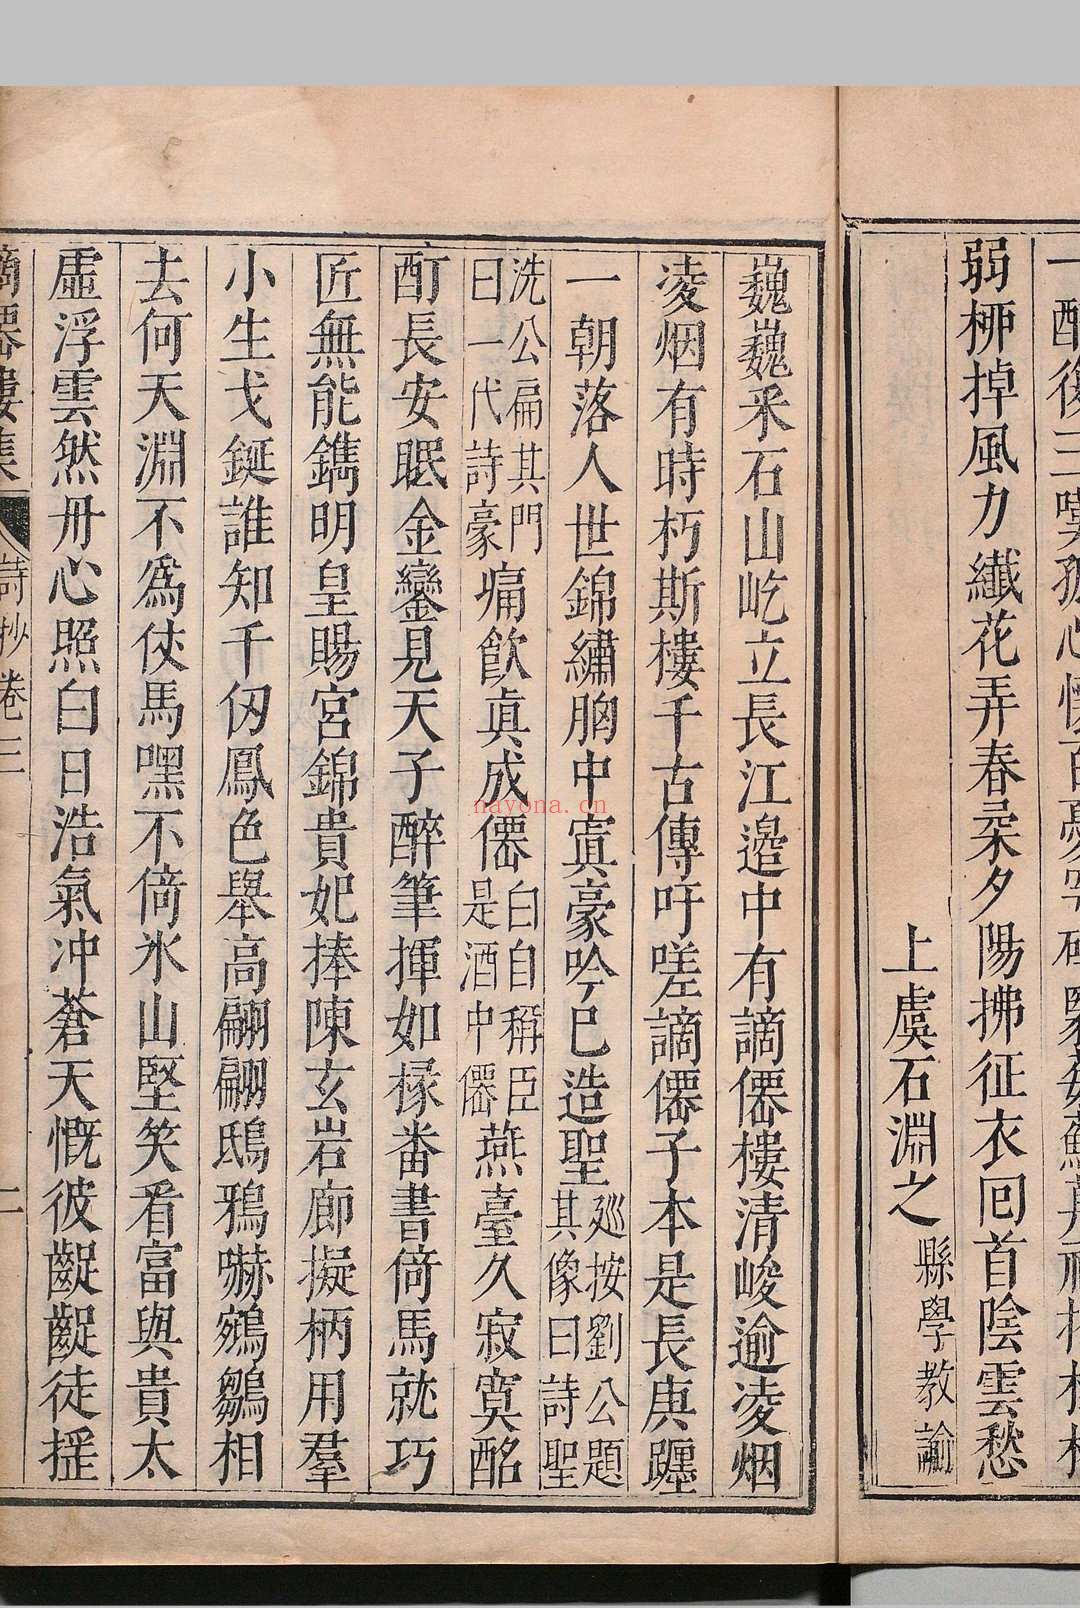 弱栁掉風力纖花弄春柔夕陽拂征衣回首陰雲愁
上虞石淵之 縣學教諭
巍巍采石山屹立長江邉中有謫僊樓清峻逾凌烟
凌烟有時朽斯樓千古傳吁嗟謫僊子本是長庚躔
一朝落人世錦繡胸中寘豪吟已造聖 廵按劉公題其像曰詩聖
洗公扁其門曰一代詩豪 痛飮眞成僊 白自稱臣是酒中僊 燕臺久寂寞酩
酊長安眠金鑾見天子醉筆揮如椽番書倚馬就巧
匠無能鐫明皇賜宮錦貴妃捧陳玄岩廊擬柄用羣
小生戈鋋誰知千仭鳳色舉高翩翩鴟鴉嚇鵷鶵相
去何天淵不爲伏馬嘿不倚氷山堅笑看富與貴太
虛浮雲然丹心照白日浩氣冲蒼天慨彼齪齪徒揑
謫僊樓集 詩抄卷三 二
nayona.cn